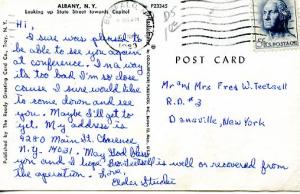 ALBANY, N.Y.
Looking up State Street towards Capitol
P23345
Hi,
I sure was pleased to
be able to see you again
at conference. In a way
its too bad I'm so close
cause I sure would like
to some down and see
you. Maybe I'll get to
yet. My address is
9280 Main St. Clarence
N.Y. 14031. May God bless
you and I hope is well or recovered from
the operation. Love,
Elder
POST CARD
Mr and Mrs Fred W. Teetsell
R.D. #3
Dansville, New York
Published by The Ready Greeting Card Co., Troy, N.Y.
U.S. POSTAGE